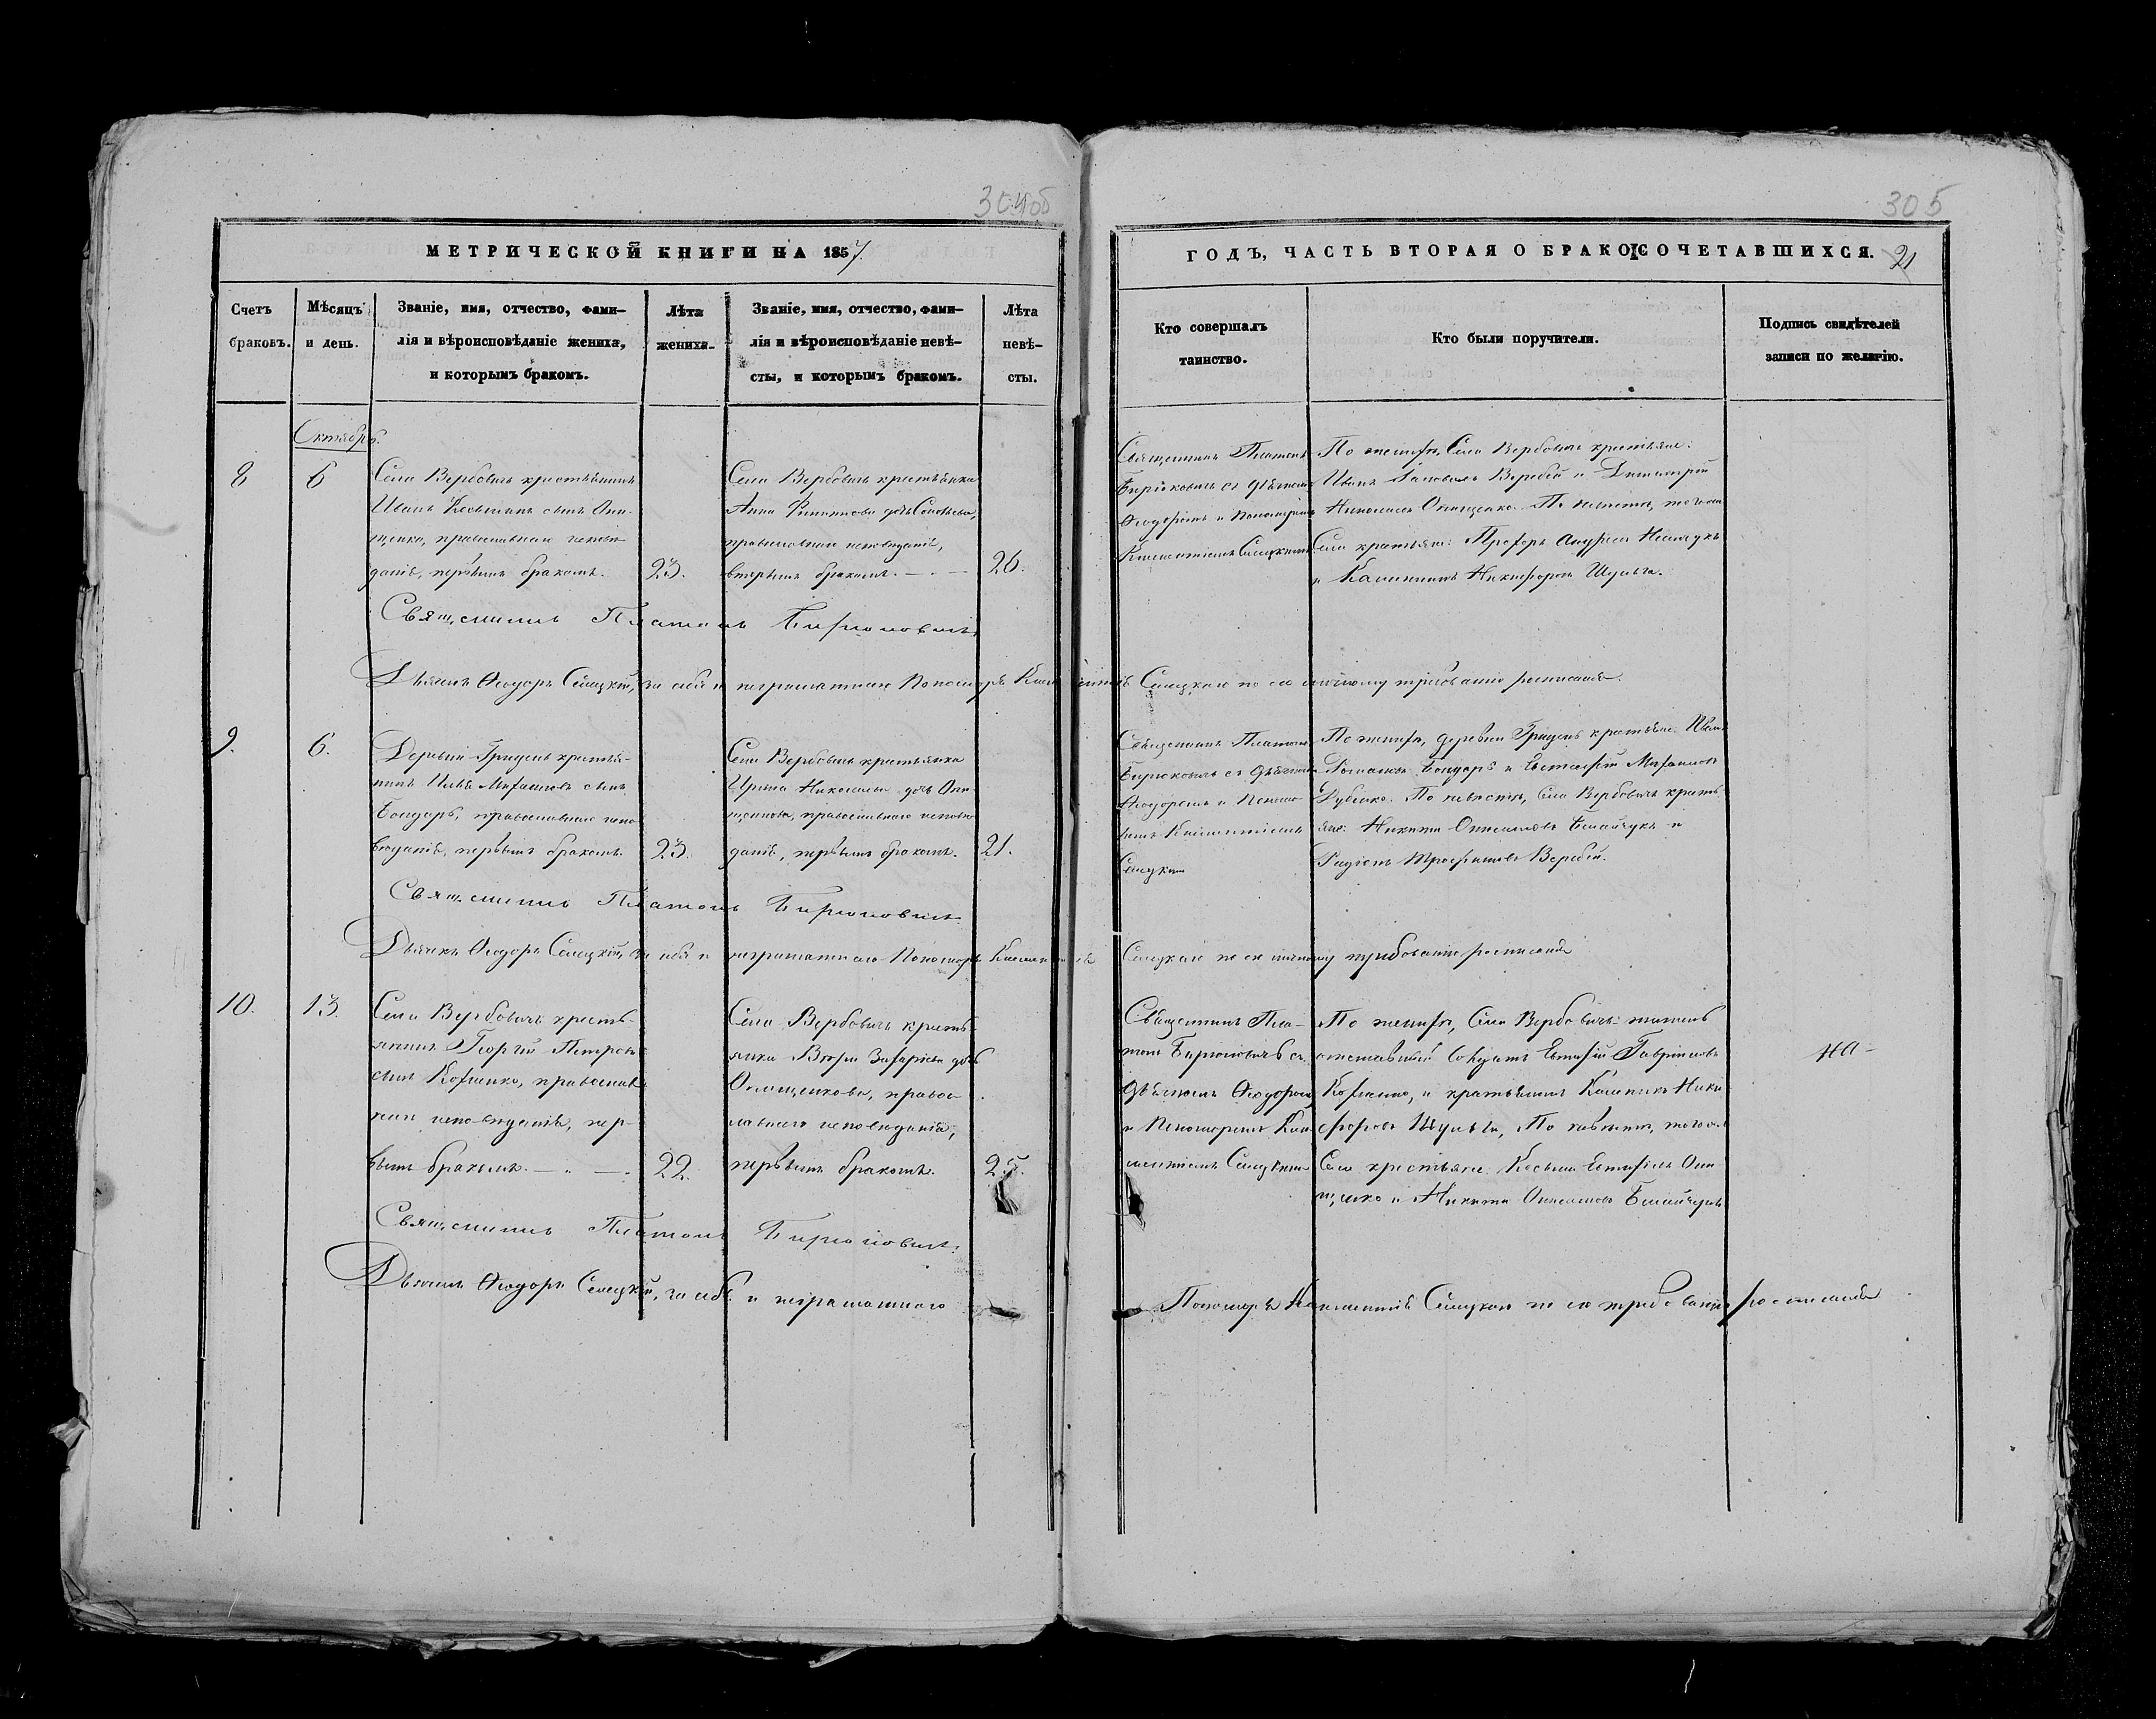 304об
305
МЕТРИЧЕСКОЙ КНИГИ НА 1857
ГОДЪ, ЧАСТЬ ВТОРАЯ О БРАКОСОЧЕТАВШИХСЯ.
21
Счетъ
браковъ.
Мѣсяцъ
и день.
Званіе, имя, отчество, фами-
лія и вѣроисповѣданіе жениха,
и которымъ бракомъ.
Лѣта
жениха.
Званіе, имя, отчество, фами-
лія и вѣроисповѣданіе невѣ-
сты, и которымъ бракомъ.
Лѣта
невѣ-
сты.
Кто совершалъ
таинство.
Кто были поручители.
Подпись свидѣтелей
записи по желанію.
Октябрь.
8
6
Села Вербовичь крестьянинъ
Иванъ Косьминъ сынъ Они-
щенко, православнаго испове-
данія, первымъ бракомъ.
23.
Села Вербовичь крестьянка
Анна дочь
православнаго исповеданія,
вторымъ бракомъ.
26.
Священникъ Платонъ
Бирюковичь съ Дьячкомъ
Ѳеодоромъ и Пономаремъ
Климентіемъ Слуцкимъ
По женихѣ, Села Вербовичь крестьяне:
Иванъ Воробей и Димитрій
Николаевъ Онищенко. По невѣстѣ, того же
Села крестьяне: Андреевъ
и Калинникъ Никифоровъ Шульга.
Священникъ Платонъ Бирюковичь
Дьячекъ Ѳеодоръ Слуцкій, за себя и неграматнаго Пономаря Климентія Слуцкаго по его личному требованію росписался.
9.
6.
Деревни Грицень крестья-
нинъ Илья Михайловъ сынъ
Бондарь, православнаго испо-
вѣданія, первымъ бракомъ.
23.
Села Вербовичь крестьянка
Ирина Николаева дочь Они-
щенкова, православнаго испове-
данія, первымъ бракомъ.
21.
Священникъ Платонъ
Бирюковичь съ Дьячкомъ
Ѳеодоромъ и Понома-
ремъ Климентіемъ
Слуцкимъ
По женихѣ, деревни Грицень крестьяне: Иванъ
Романовъ Бондарь и Евстафій Михайловъ
По невѣстѣ, Села Вербовичь кресть-
яне: Никита Онисимовъ и
Родіонъ Трофимовъ Воробей.
Священникъ Платонъ Бирюковичь
Дьячекъ Ѳеодоръ Слуцкій, за себя и неграматнаго Пономаря Климентія Слуцкаго по его личному требованію росписался
10.
13.
Села Вербовичь кресть-
янинъ Георгій Петровъ
сынъ Кохненко, православ-
наго исповѣданія, пер-
вымъ бракомъ.
22.
Села Вербовичь кресть-
янка Захаріева дочь
Онищенкова, право-
славнаго исповеданія,
первымъ бракомъ.
25.
Священникъ Пла-
тонъ Бирюковичь съ
Дьячкомъ Ѳеодоромъ
и Пономаремъ Кли-
ментіемъ Слуцкимъ
По женихѣ, Села Вербовичь:
отставный солдатъ Евтихій Гавриловъ
Кохненко, и крестьянинъ Калинникъ Ники-
форовъ Шульга, По невѣстѣ, того же
Села крестьяне: Косьма Евтихіевъ Они-
щенко и Никита Онисимовъ
Священникъ Платонъ Бирюковичь.
Дьячекъ Ѳеодоръ Слуцкій, за себя и неграматнаго Пономаря Климентія Слуцкаго по его требованію росписался